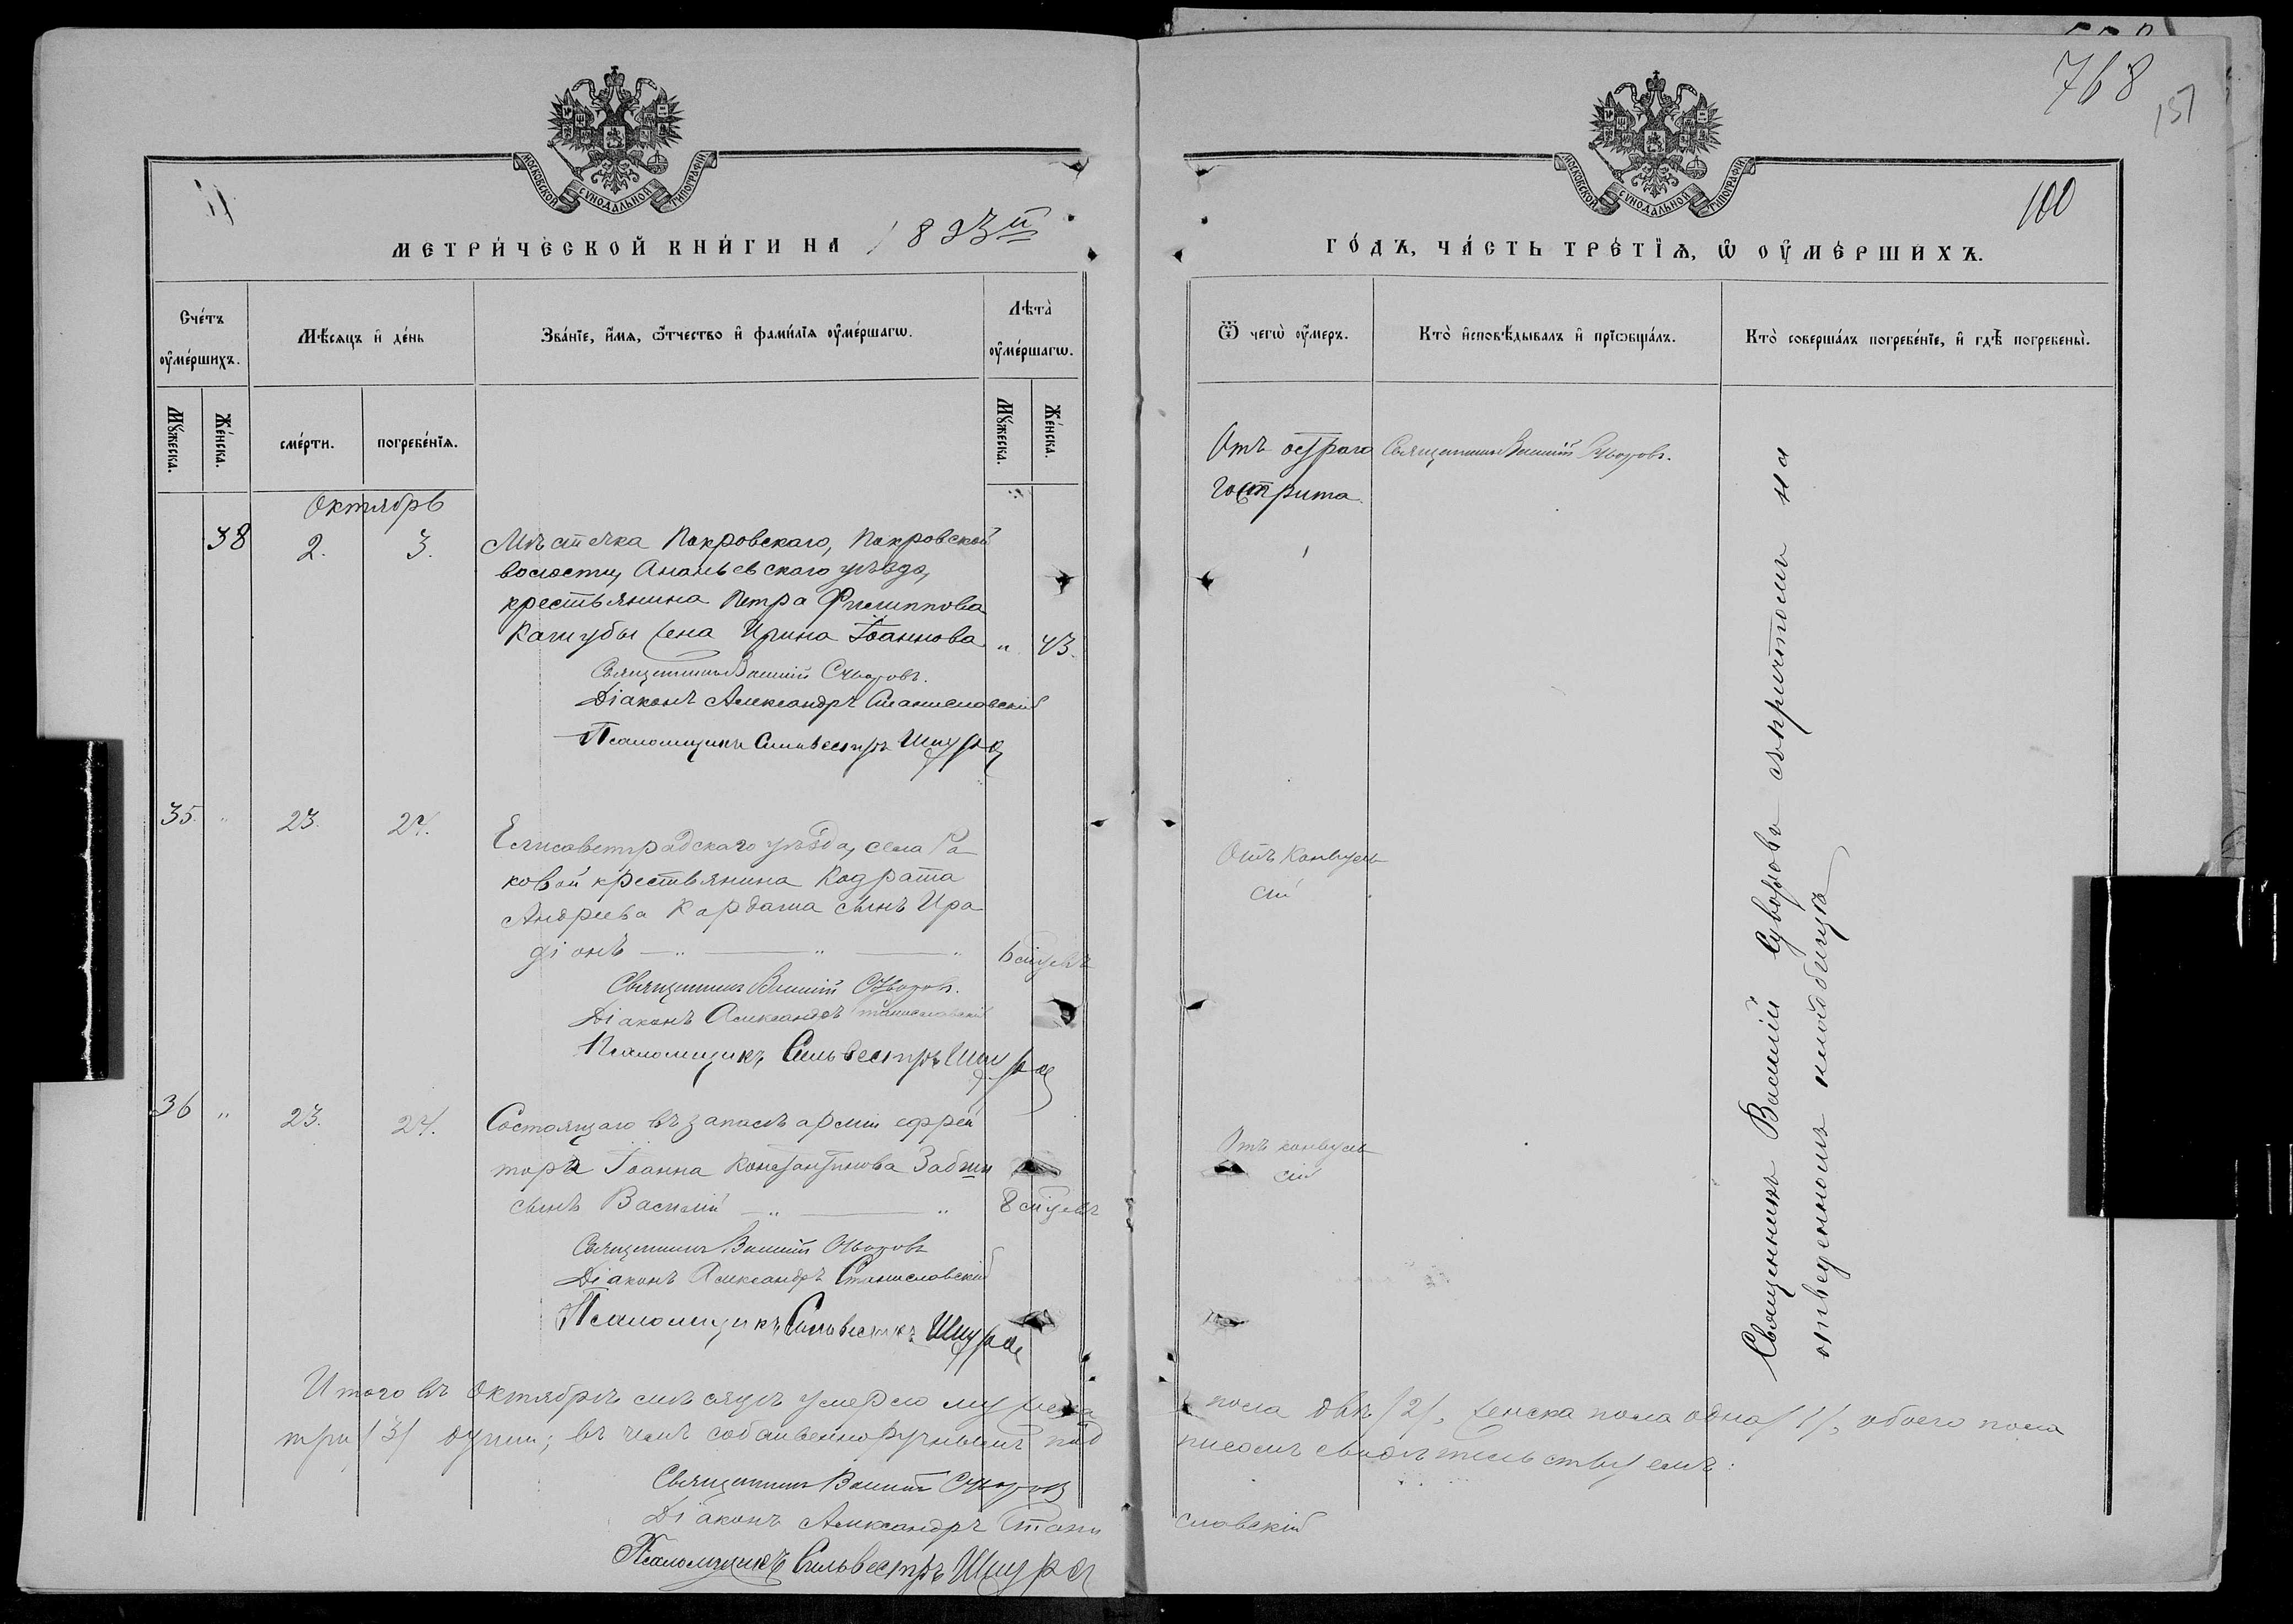 МОСКОВСКОЙ СУНОДАЛЬНОЙ ТИПОГРАФІИ
МЕТРИЧЕСКОЙ КНИГИ НА 1893й
Счетъ оумершихъ.
Мѣсяцъ и день
Званіе, имя, ѿчество и фамилія оумершагѡ.
Лѣта оумершагѡ.
Мужеска.
Женска.
смерти.
погребенія.
Мужеска.
Женска.
Октябрь
38 2. 3. Мѣстечка Покровскаго, Покровской
волости, Ананьевскаго уѣзда,
крестьянина Петра Филиппова
Кашубы жена Ирина Іоаннова " 43.
Священникъ Василій Суворовъ.
Діаконъ Александръ Станиславскій
Псаломщикъ Сильвестръ
35. " 23. 24. Елисаветградскаго уѣзда, села Ра
ковой крестьянина Кодрата
Андреева Кардаша сынъ Ира
діонъ — " — " — " 6 мѣсяцъ
Священникъ Василій Суворовъ.
Діаконъ Александръ Станиславскій
Псаломщикъ Сильвестръ
36 " 23. 24. Состоящаго въ запасѣ арміи ефрей
тора Іоанна Константинова
сынъ Василій — " — " 8 мѣсяцъ
Священникъ Василій Суворовъ
Діаконъ Александръ Станиславскій
Псаломщикъ Сильвестръ
Итого въ Октябрѣ мѣсяцѣ умерло мужеска
три /3/ души; въ чемъ собственноручнымъ под
Священникъ Василій Суворовъ
Діаконъ Александръ Стани
Псаломщикъ Сильвестръ
768
151
МОСКОВСКОЙ СУНОДАЛЬНОЙ ТИПОГРАФІИ
100
ГОДЪ, ЧАСТЬ ТРЕТІЯ, Ѡ ОУМЕРШИХЪ.
Ѿ чегѡ оумеръ.
Кто исповѣдывалъ и пріѡбщалъ.
Кто совершалъ погребеніе, и гдѣ погребены.
Отъ остраго Священникъ Василій Суворовъ.
гастрита
Отъ конвуль
сій
Отъ конвуль
сій
Священникъ Василій Суворовъ съ причтомъ на
отведенномъ кладбищѣ
пола двѣ /2/, женска пола одна /1/, обоего пола
писомъ свидѣтельствуемъ:
славскій